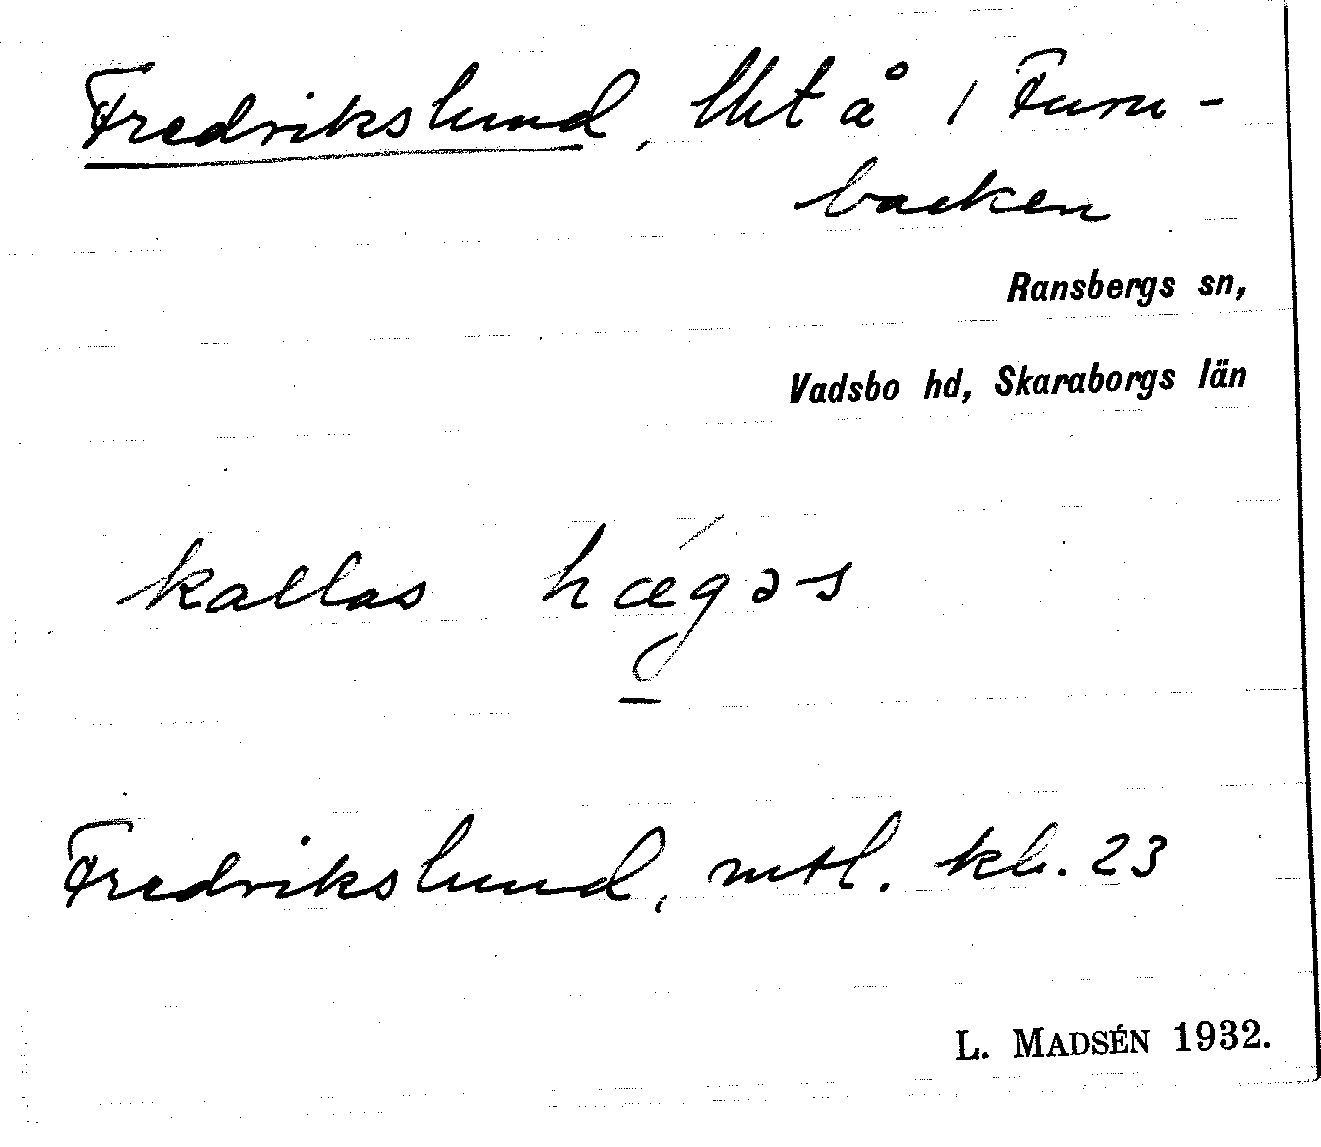 Fredrikslund, lht å 1 Furu-
backen
Ransbergs sn,
Vadsbo hd, Skaraborgs län
kallas hǽgəs
Fredrikslund, mtl. kb. 23
L. MADSÉN 1932.